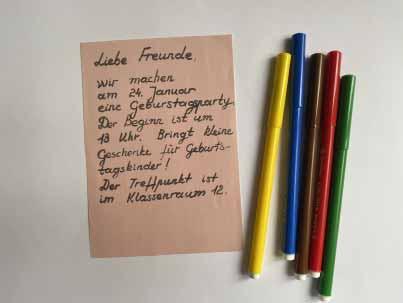 Liebe Freunde,
wir machen
am 24. Januar
eine Geburstagsparty.
Der Beginn ist um
13 Uhr. Bringt kleine
Geschenke für Geburts-
tagskinder!
Der Treffpunkt ist
im Klassenraum 12.